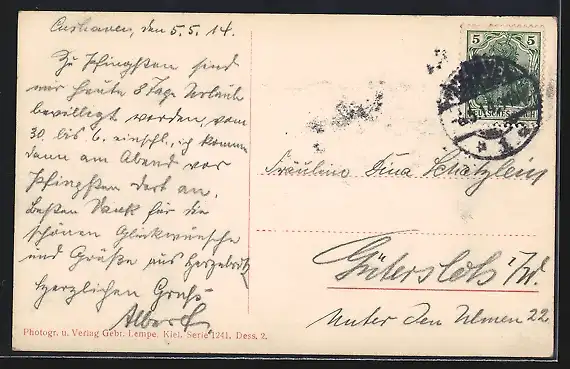 Cuxhaven, den 5.5.14.
Zu Pfingsten sind
mir heute 8 Tage Urlaub
bewilligt worden, vom
30. bis 6. einschl., ich komme
dann am Abend vor
Pfingsten dort an.
Besten Dank für die
schönen Glückwünsche
und Grüße aus Herzebrok
Herzlichen Gruß
Albert
Photogr. u. Verlag Gebr. Lempe, Kiel. Serie 1241, Dess. 2.
5 5
Fräulein Tina Schätzlein
Gütersloh i/W.
Unter den Ulmen 22